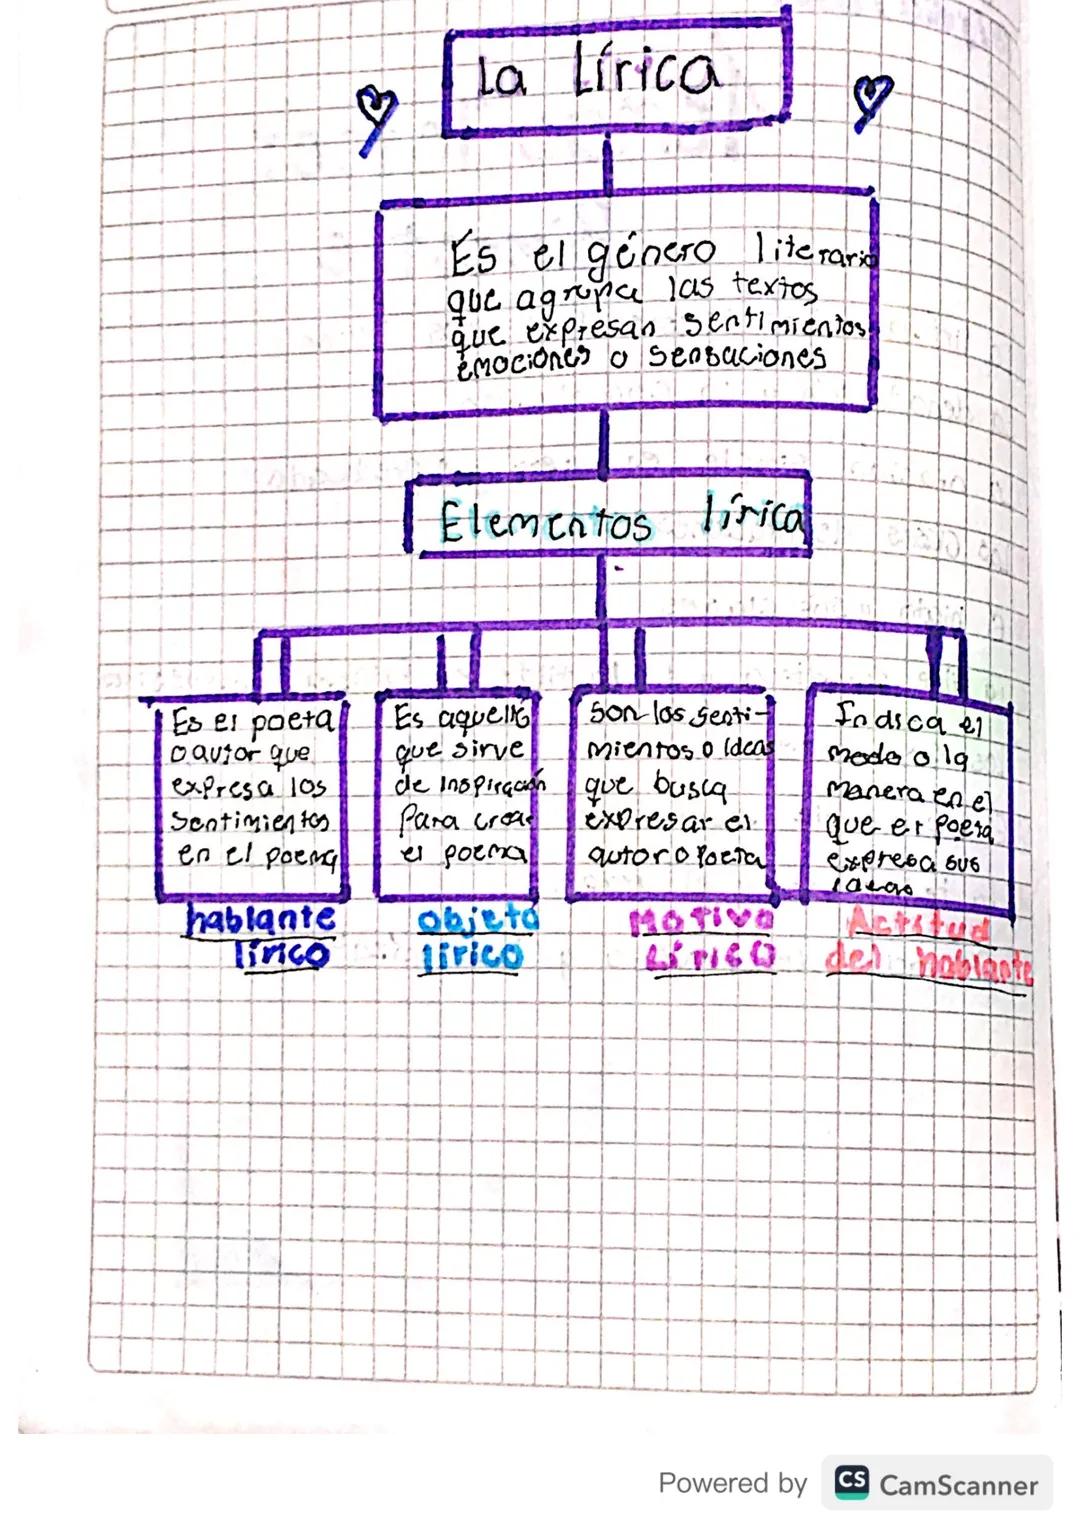 La Lírica
Es el género literario
que agrupa las textos
que expresan sentimientos
emociones o sensaciones
Elementos lírica
Es el poeta
o autor que
expresa los
sentimientos
en el poema
hablante
lírico
Es aquello
que sirve
de inspiración
Para crear
el poema
objeto
lírico
Son los senti-
mientos o ideas
que busca
expresar el
autor o Poeta
Motivo
Lírico
Indica el
modo o la
manera en el
que el poeta
expresa sus
ideas
Actitud
del hablante
Powered by CS CamScanner